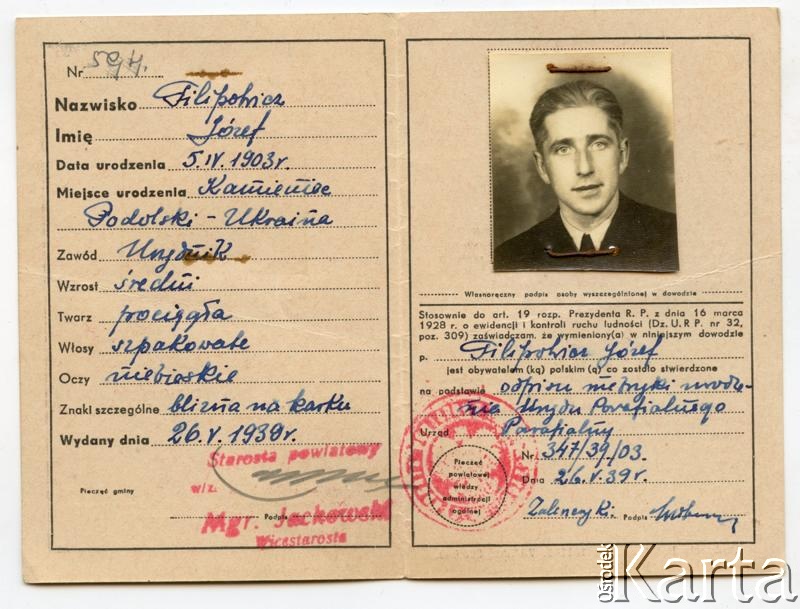 Nr 594.
Nazwisko Filipowicz
Imię Józef
Data urodzenia 5.IV.1903r.
Miejsce urodzenia Kamieniec
Podolski - Ukraina
Zawód Urzędnik
Wzrost średni
Twarz pociągła
Włosy szpakowate
Oczy niebieskie
Znaki szczególne blizna na karku
Wydany dnia 26.V.1939r.
Starosta powiatowy
w/z.
Pieczęć gminy
Podpis
Mgr. Jackowski
Wicestarosta
Własnoręczny podpis osoby wyszczególnionej w dowodzie
Stosownie do art. 19 rozp. Prezydenta R. P. z dnia 16 marca
1928 r. o ewidencji i kontroli ruchu ludności (Dz. U. R P. nr 32,
poz. 309) zaświadczam, że wymieniony(a) w niniejszym dowodzie
p. Filipowicz Józef
jest obywatelem (ką) polskim (ą) co zostało stwierdzone
na podstawie odpisu metryki urodze-
nia Urzędu Parafialnego
Urząd Parafialny
Nr. 347/39/03.
Dnia 26.V.39r.
Pieczęć
powiatowej
władzy
administracji
ogólnej
Podpis
Ośrodek Karta